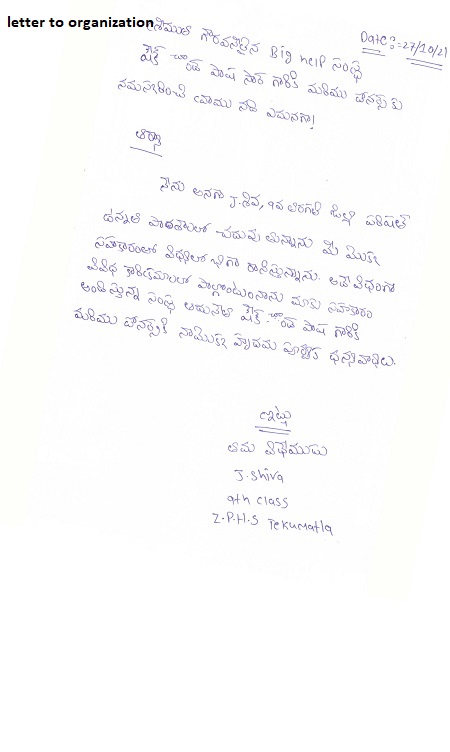 letter to organization
Date:=27/10/21
శ్రీయుత గౌరవనీయులైన Big help సంస్థ
షేక్ చాంద్ పాష సార్ గారికి మరియు డోనర్స్ కు
నమస్కరించి వ్రాయు నది ఏమనగా!
ఆర్యా
నేను అనగా J.శివ, 9వ తరగతి జిల్లా పరిషత్
ఉన్నత పాఠశాలలో చదువు తున్నాను మీ మొక్క
సహకారంలో విధ్యలో బాగా రానిస్తున్నాను. అదేవిధంగా
వివిధ కార్యక్రమాలలో పాల్గొంటున్నాను మాకు సహకారం
అందిస్తున్న సంస్థ షేక్ చాంద్ పాష గారికి
మరియు డోనర్స్ కి నామొక్క హృదయ పూర్వక ధన్యవాదాలు.
ఇట్లు
తమ విధేయుడు
J. Shiva
9th class
Z.P.H.S Tekumatla